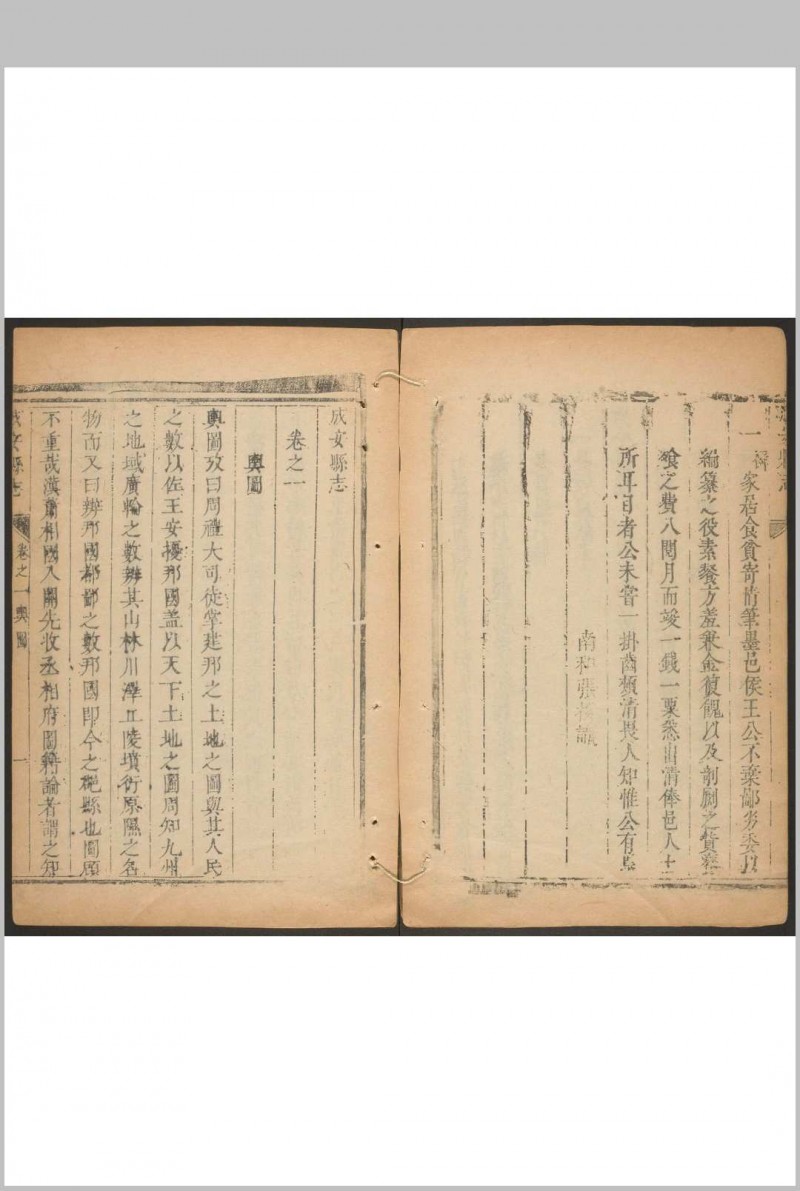 一
家居食貧寄情筆墨邑侯王公不棄鄙劣委以
編纂之役素餐方羞衆金偵餽以及剞劂之貲
飱之費八閱月而竣一錢一粟悉出清俸邑人士
所耳目者公未嘗一掛齒頰清畏人知惟公有焉
南和張
成安縣志
卷之一
輿圖
輿圖攷曰周禮大司徒掌建邦之土地之圖與其人民
之數以佐王安擾邦國盖以天下土地之圖周知九州
之地域廣輪之數辨其山林川澤丘陵墳衍原隰之名
物而又曰辨邦國都鄙之數邦國即今之縣也圖顧
不重哉漢蕭相國入關先收丞相府圖籍論者謂之知
成安縣志 卷之一 輿圖 一